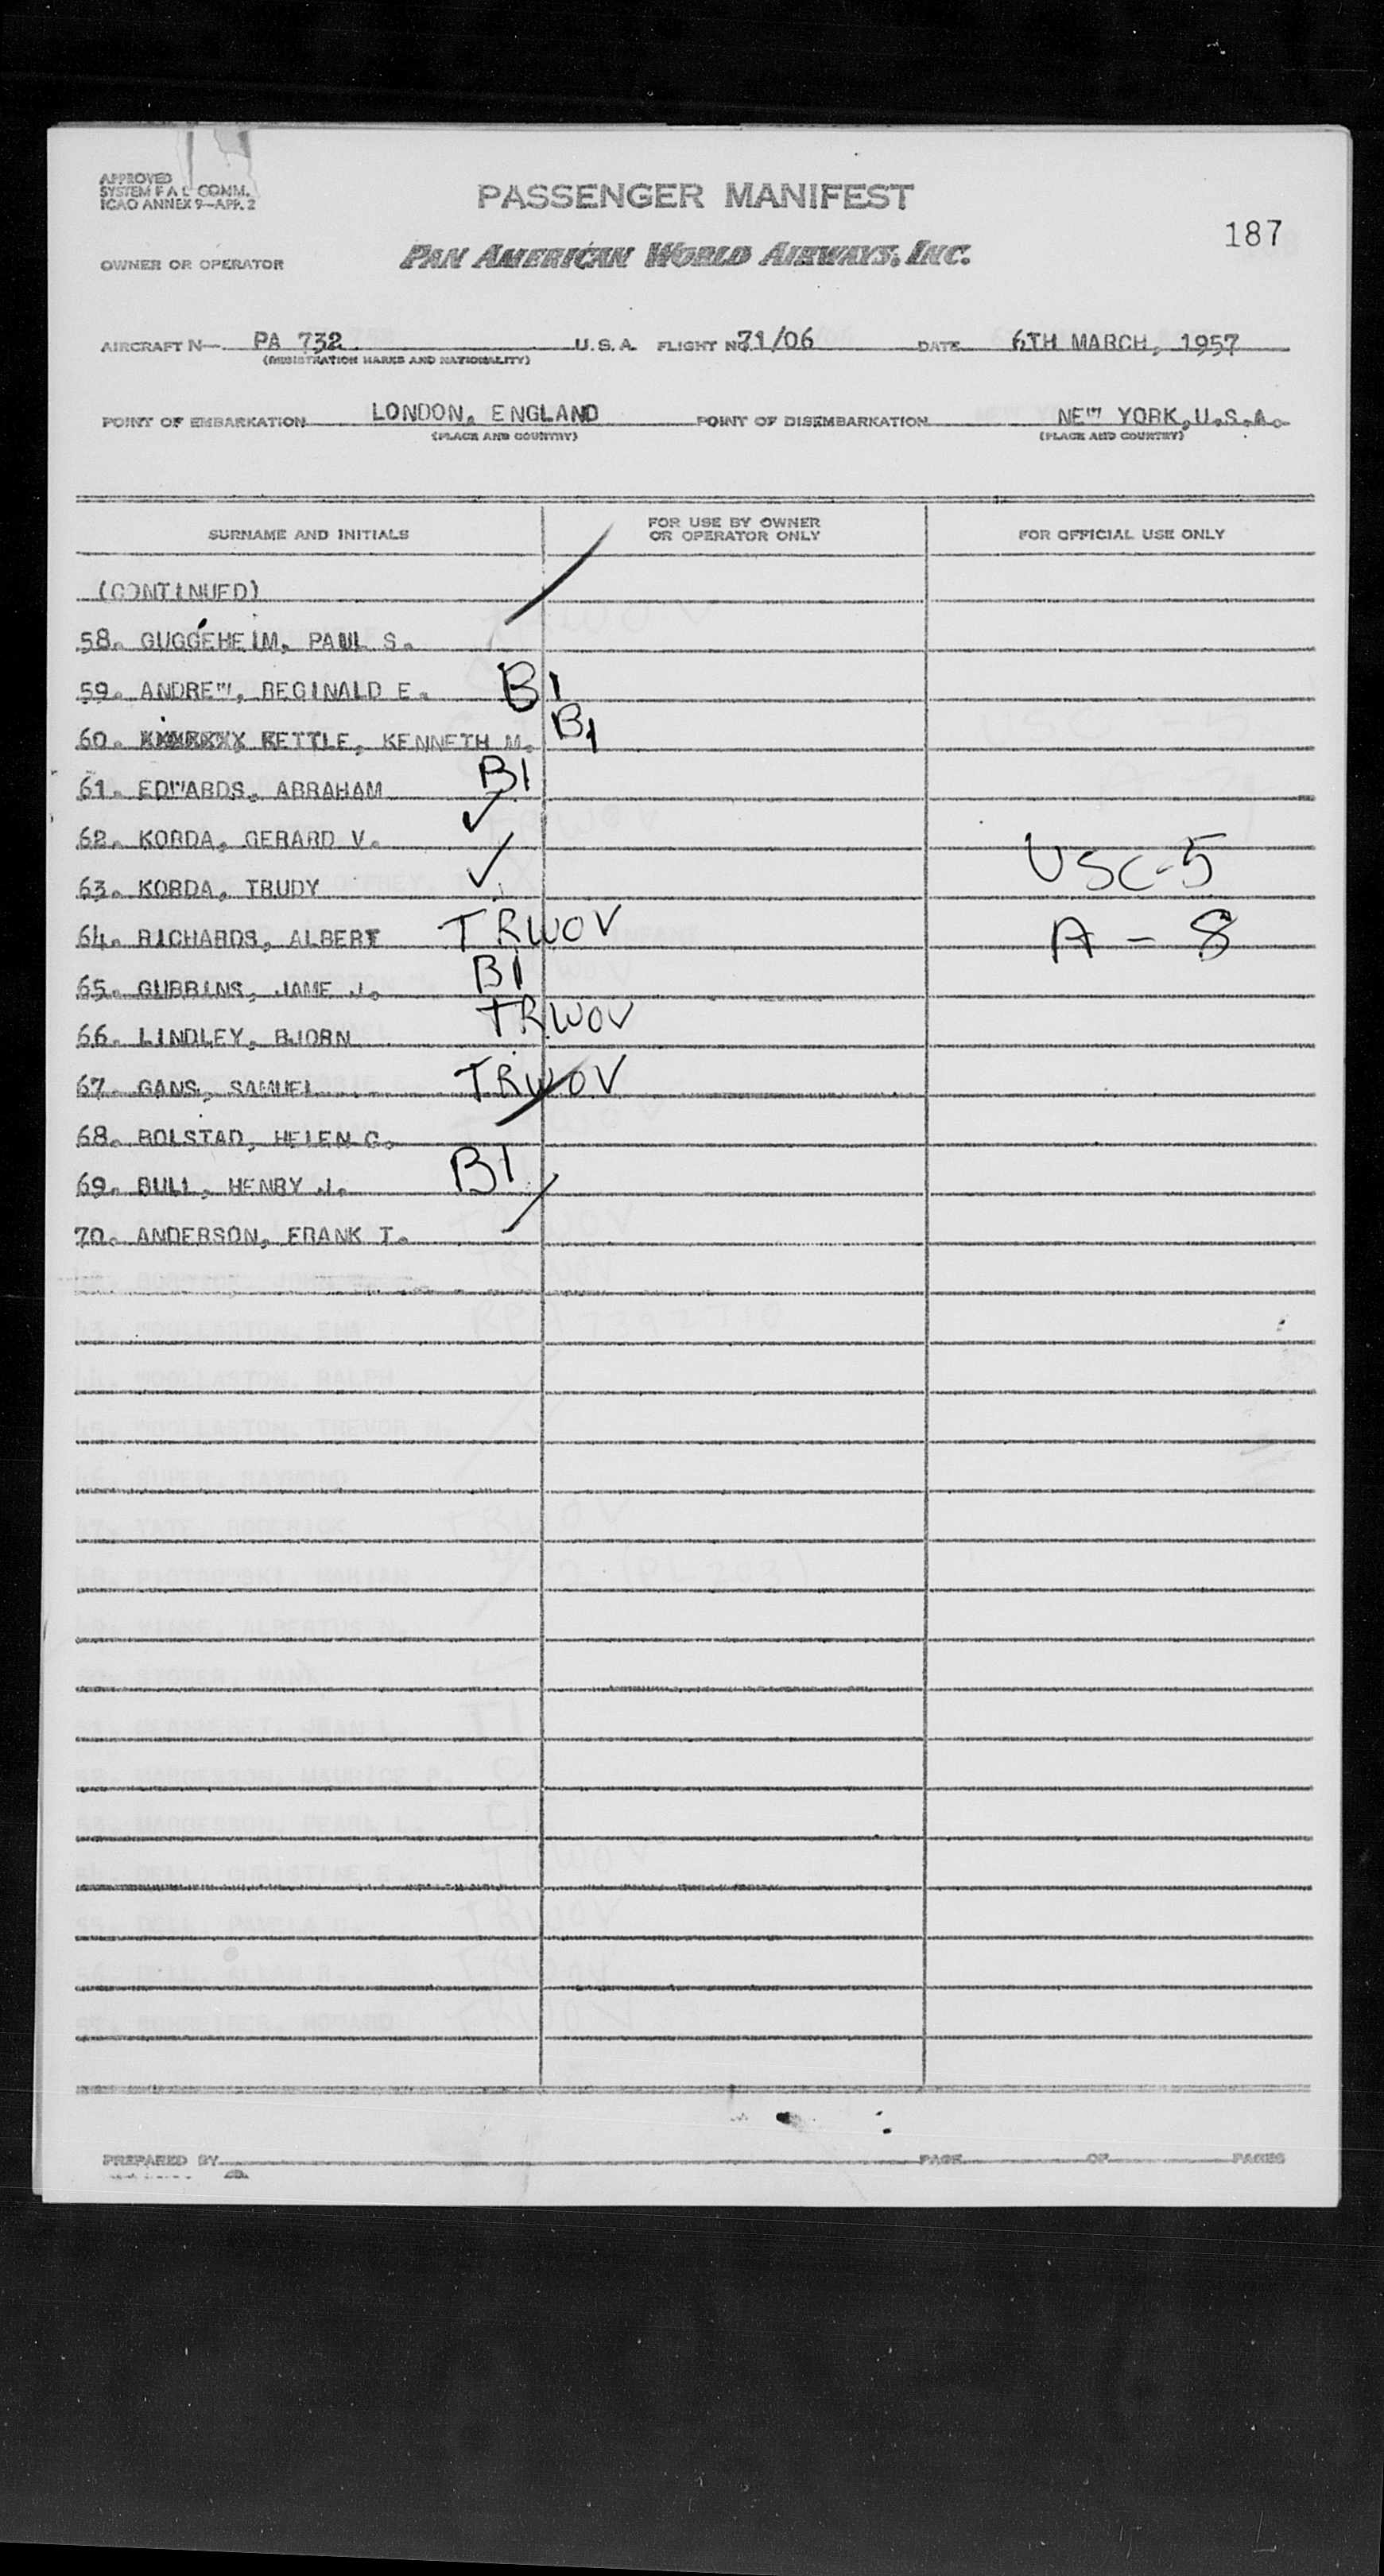 APPROVED
SYSTEM F A L COMM.
ICAO ANNEX 9-APP. 2
PASSENGER MANIFEST
187
OWNER OR OPERATOR PAN AMERICAN WORLD AIRWAYS, INC.
AIRCRAFT N— PA 732 U.S.A. FLIGHT NO. 71/06 DATE 6TH MARCH, 1957
(REGISTRATION MARKS AND NATIONALITY)
POINT OF EMBARKATION LONDON, ENGLAND POINT OF DISEMBARKATION NEW YORK, U.S.A.
(PLACE AND COUNTRY) (PLACE AND COUNTRY)
SURNAME AND INITIALS FOR USE BY OWNER OR OPERATOR ONLY FOR OFFICIAL USE ONLY
(CONTINUED)
58. GUGGEHEIM, PAUL S.
59. ANDREW, REGINALD E. B1
60. KETTLE, KENNETH M. B1
61. EDWARDS, ABRAHAM B1
62. KORDA, GERARD V. ✓
63. KORDA, TRUDY ✓ USC-5
64. RICHARDS, ALBERT TRWOV A - 8
65. GUBBINS, JAME J. B1
66. LINDLEY, BJORN TRWOV
67. GANS, SAMUEL TRWOV
68. BOLSTAD, HELEN C.
69. BULL, HENRY J. B1
70. ANDERSON, FRANK T.
PREPARED BY PAGE OF PAGES